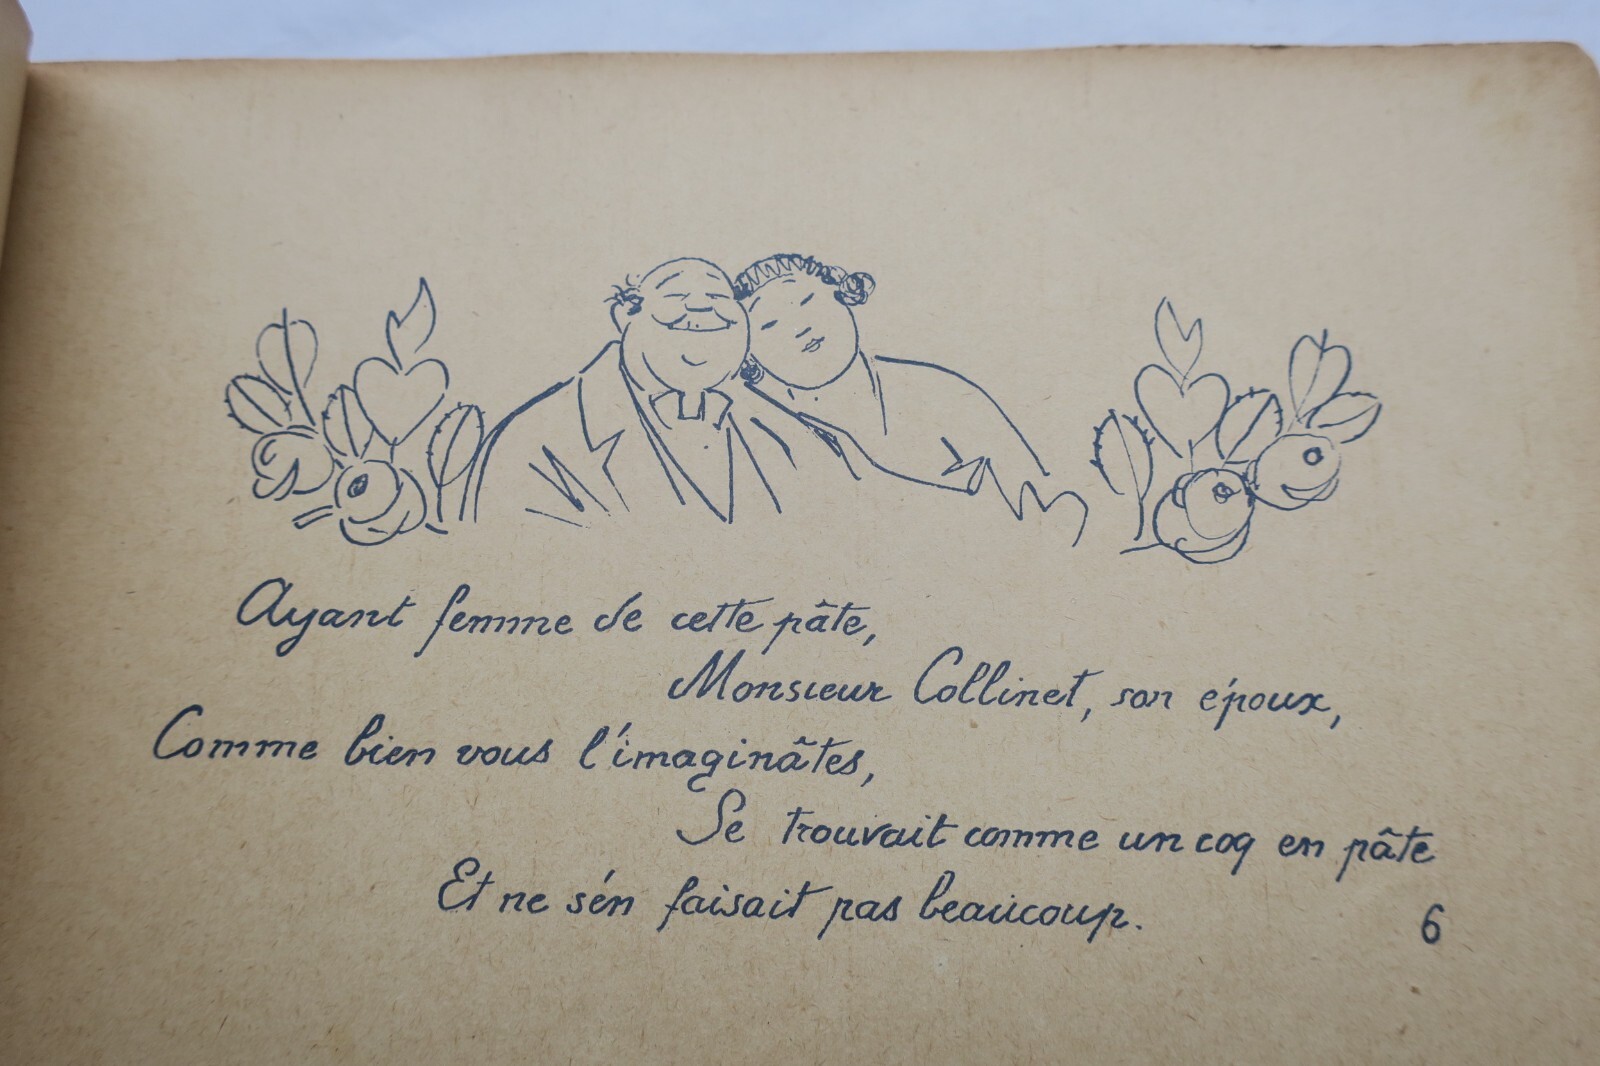 Ayant femme de cette pâte,
Monsieur Collinet, son époux,
Comme bien vous l'imaginâtes,
Se trouvait comme un coq en pâte
Et ne s'en faisait pas beaucoup.
6